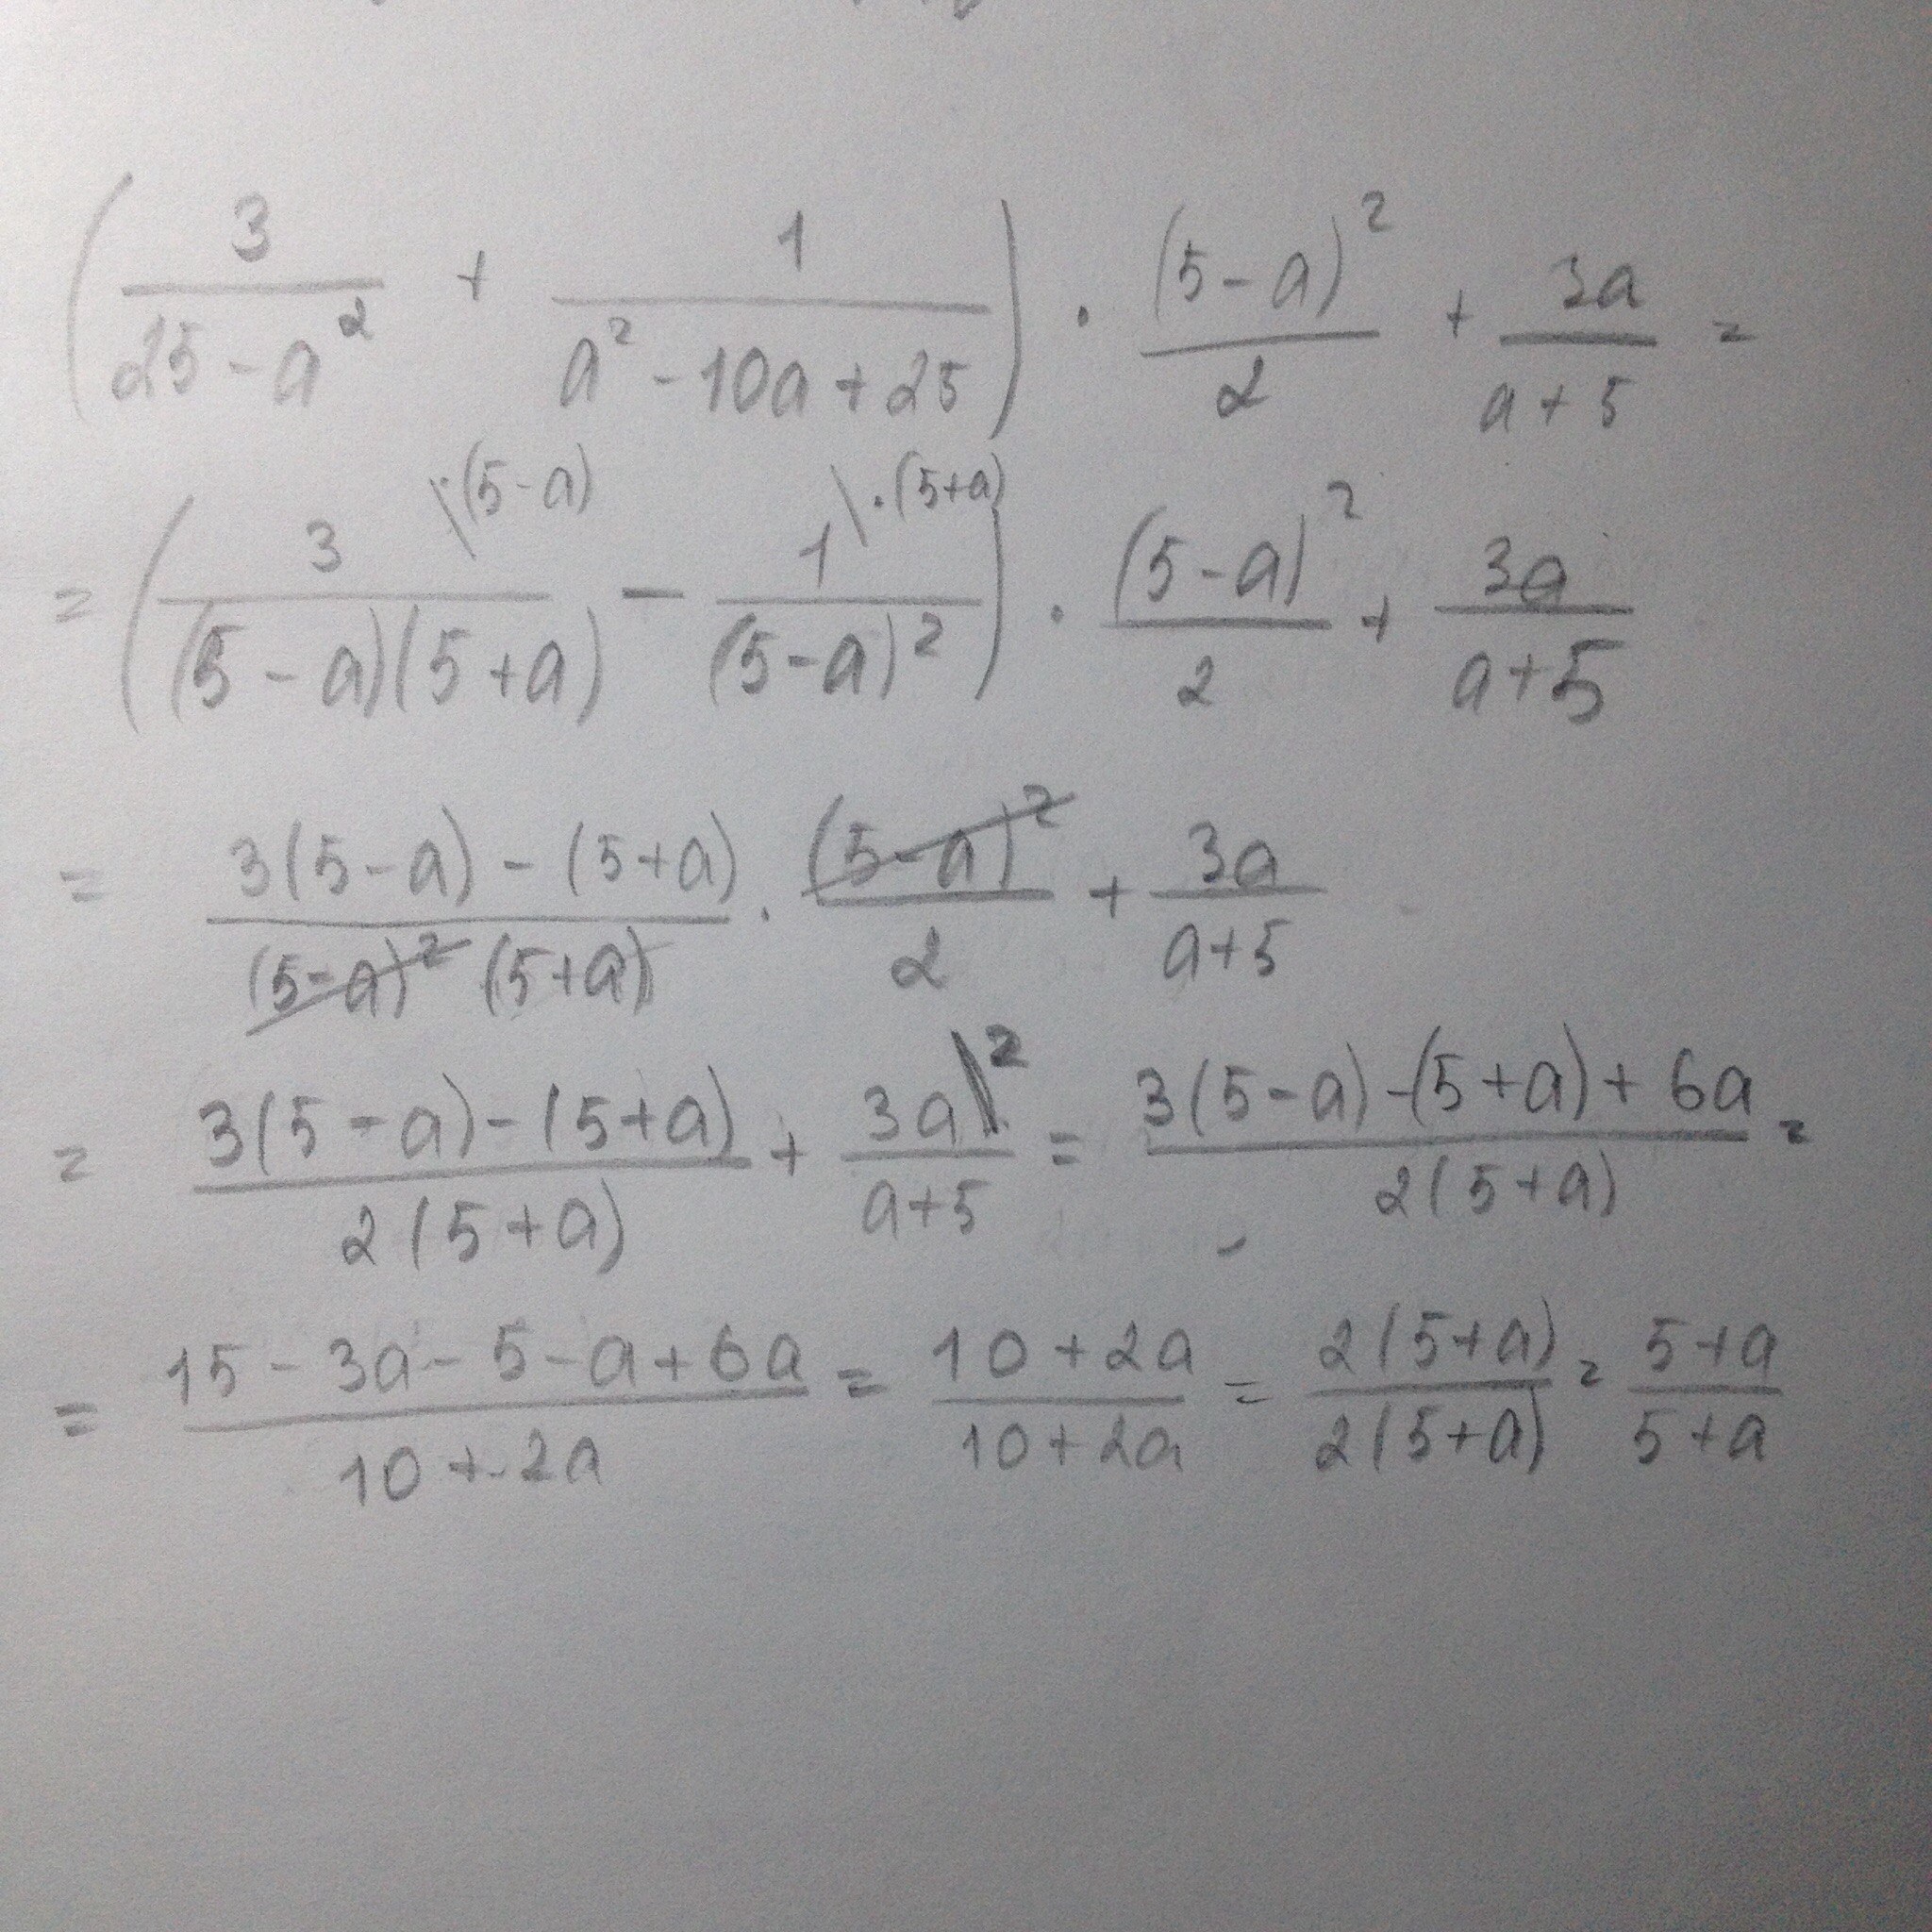 (3/(25 - a²) + 1/(a² - 10a + 25)) · (5 - a)²/2 + 3a/(a + 5) =
= (3/((5 - a)(5 + a)) \·(5 - a) − 1/(5 - a)² \·(5 + a)) · (5 - a)²/2 + 3a/(a + 5)
= (3(5 - a) - (5 + a))/((5 - a)² (5 + a)) · (5 - a)²/2 + 3a/(a + 5)
= (3(5 - a) - (5 + a))/(2(5 + a)) + 3a/(a + 5) \2 = (3(5 - a) - (5 + a) + 6a)/(2(5 + a)) =
= (15 - 3a - 5 - a + 6a)/(10 + 2a) = (10 + 2a)/(10 + 2a) = 2(5 + a)/2(5 + a) = (5 + a)/(5 + a)